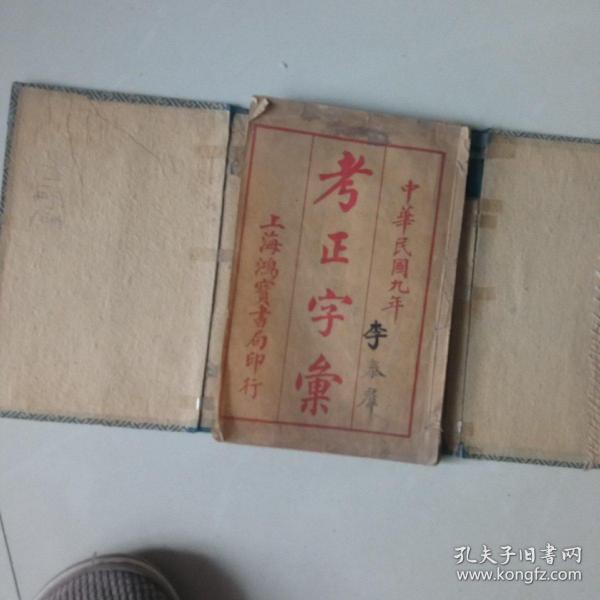 中華民國九年
李春
考正字彙
上海鴻寶書局印行
孔夫子旧书网
www.kongfz.com